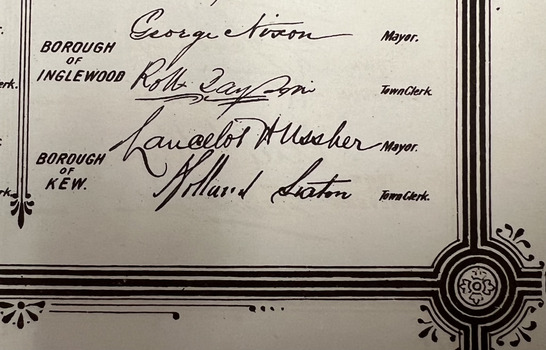 r.
George Nixon Mayor.
BOROUGH
OF
INGLEWOOD
erk.
Robt Town Clerk.
Lancelot H Ussher Mayor.
BOROUGH
OF
KEW.
rk.
Holland Sexton Town Clerk.